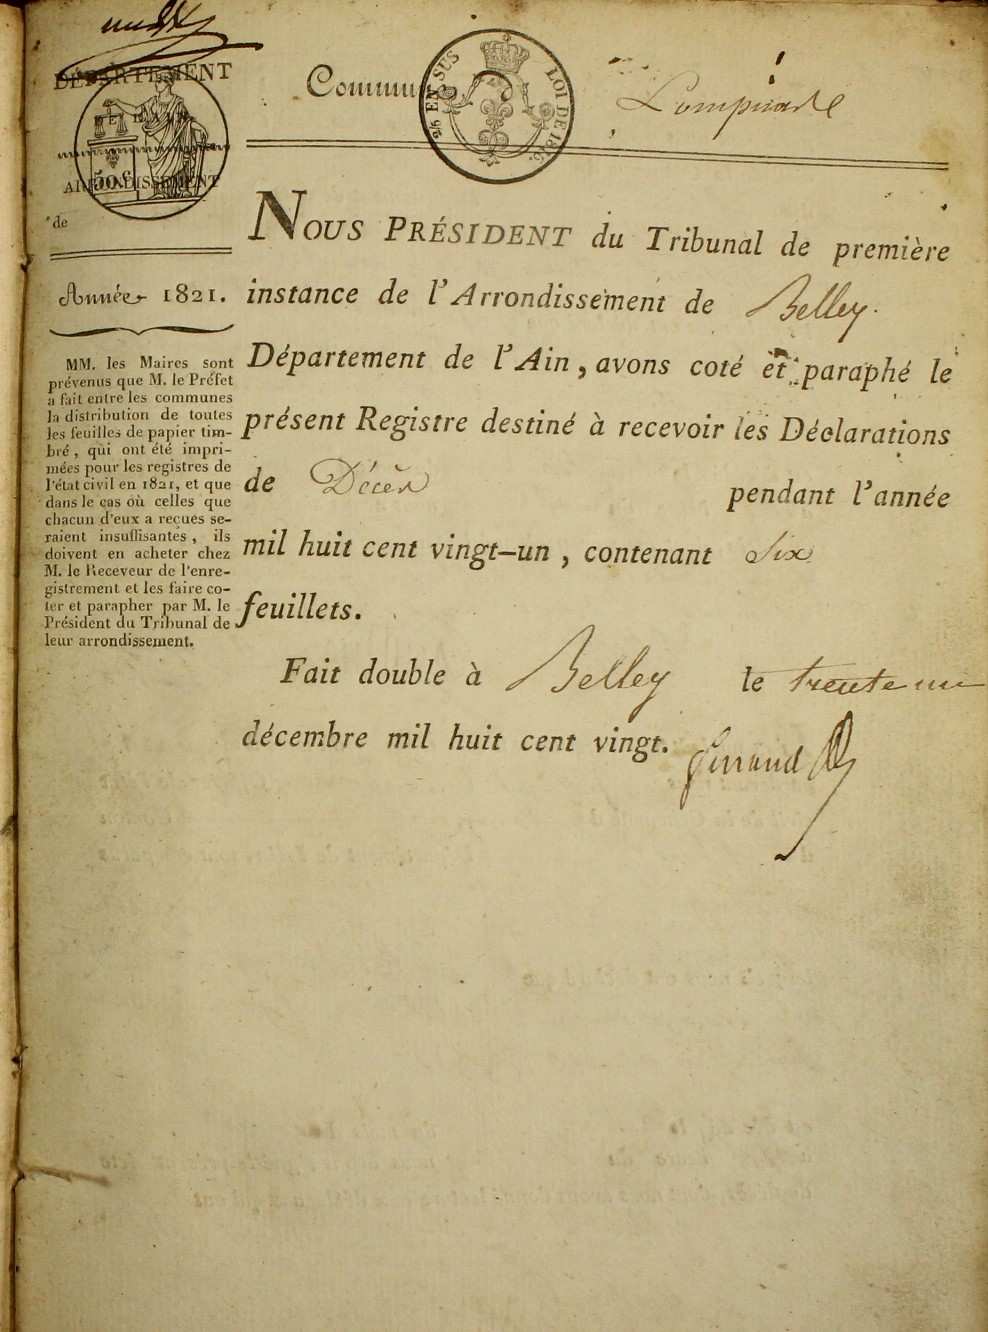 DÉPARTEMENT
ARRONDISSEMENT
de
50 c
2/10 EN SUS
LOI DE 1816.
Commune
Lompnas
Année 1821.
MM. les Maires sont
prévenus que M. le Préfet
a fait entre les communes
la distribution de toutes
les feuilles de papier tim-
bré, qui ont été impri-
mées pour les registres de
l'état civil en 1821, et que
dans le cas où celles que
chacun d'eux a reçues se-
raient insuffisantes, ils
doivent en acheter chez
M. le Receveur de l'enre-
gistrement et les faire co-
ter et parapher par M. le
Président du Tribunal de
leur arrondissement.
NOUS PRÉSIDENT du Tribunal de première
instance de l'Arrondissement de Belley.
Département de l'Ain, avons coté et paraphé le
présent Registre destiné à recevoir les Déclarations
de Décès pendant l'année
mil huit cent vingt-un, contenant six
feuillets.
Fait double à Belley le trente un
décembre mil huit cent vingt.